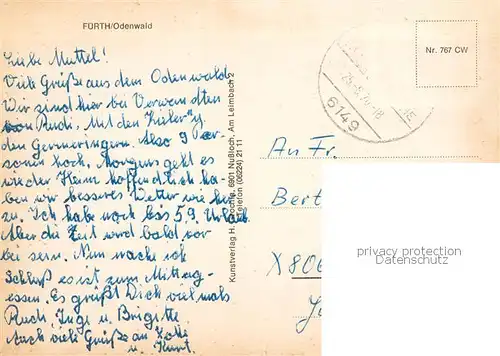 FÜRTH/Odenwald
Liebe Muttel!
Viele Grüße aus dem Odenwald
Wir sind hier bei Verwandten
von Rudi. Mit den
den Germeringern. Also 9 Per-
sonen hoch. Morgen geht es
wieder Heim hoffendlich ha-
ben wir besseres Wetter wie hier
zu. Ich habe noch bis 5.9. Urlaub
Aber die Zeit wird bald vor
bei sein. Nun mache ich
Schluß es ist zum Mittag-
essen. Es grüßt Dich vielmals
Rudi, Inge u. Brigitte
Auch viele Grüße an
u. Kurt.
Kunstverlag H. 6901 Nußloch, Am Leimbach 2
Telefon (06224) 21 11
6149
Nr. 767 CW
An Fr.
Bert
X 806
privacy protection
Datenschutz